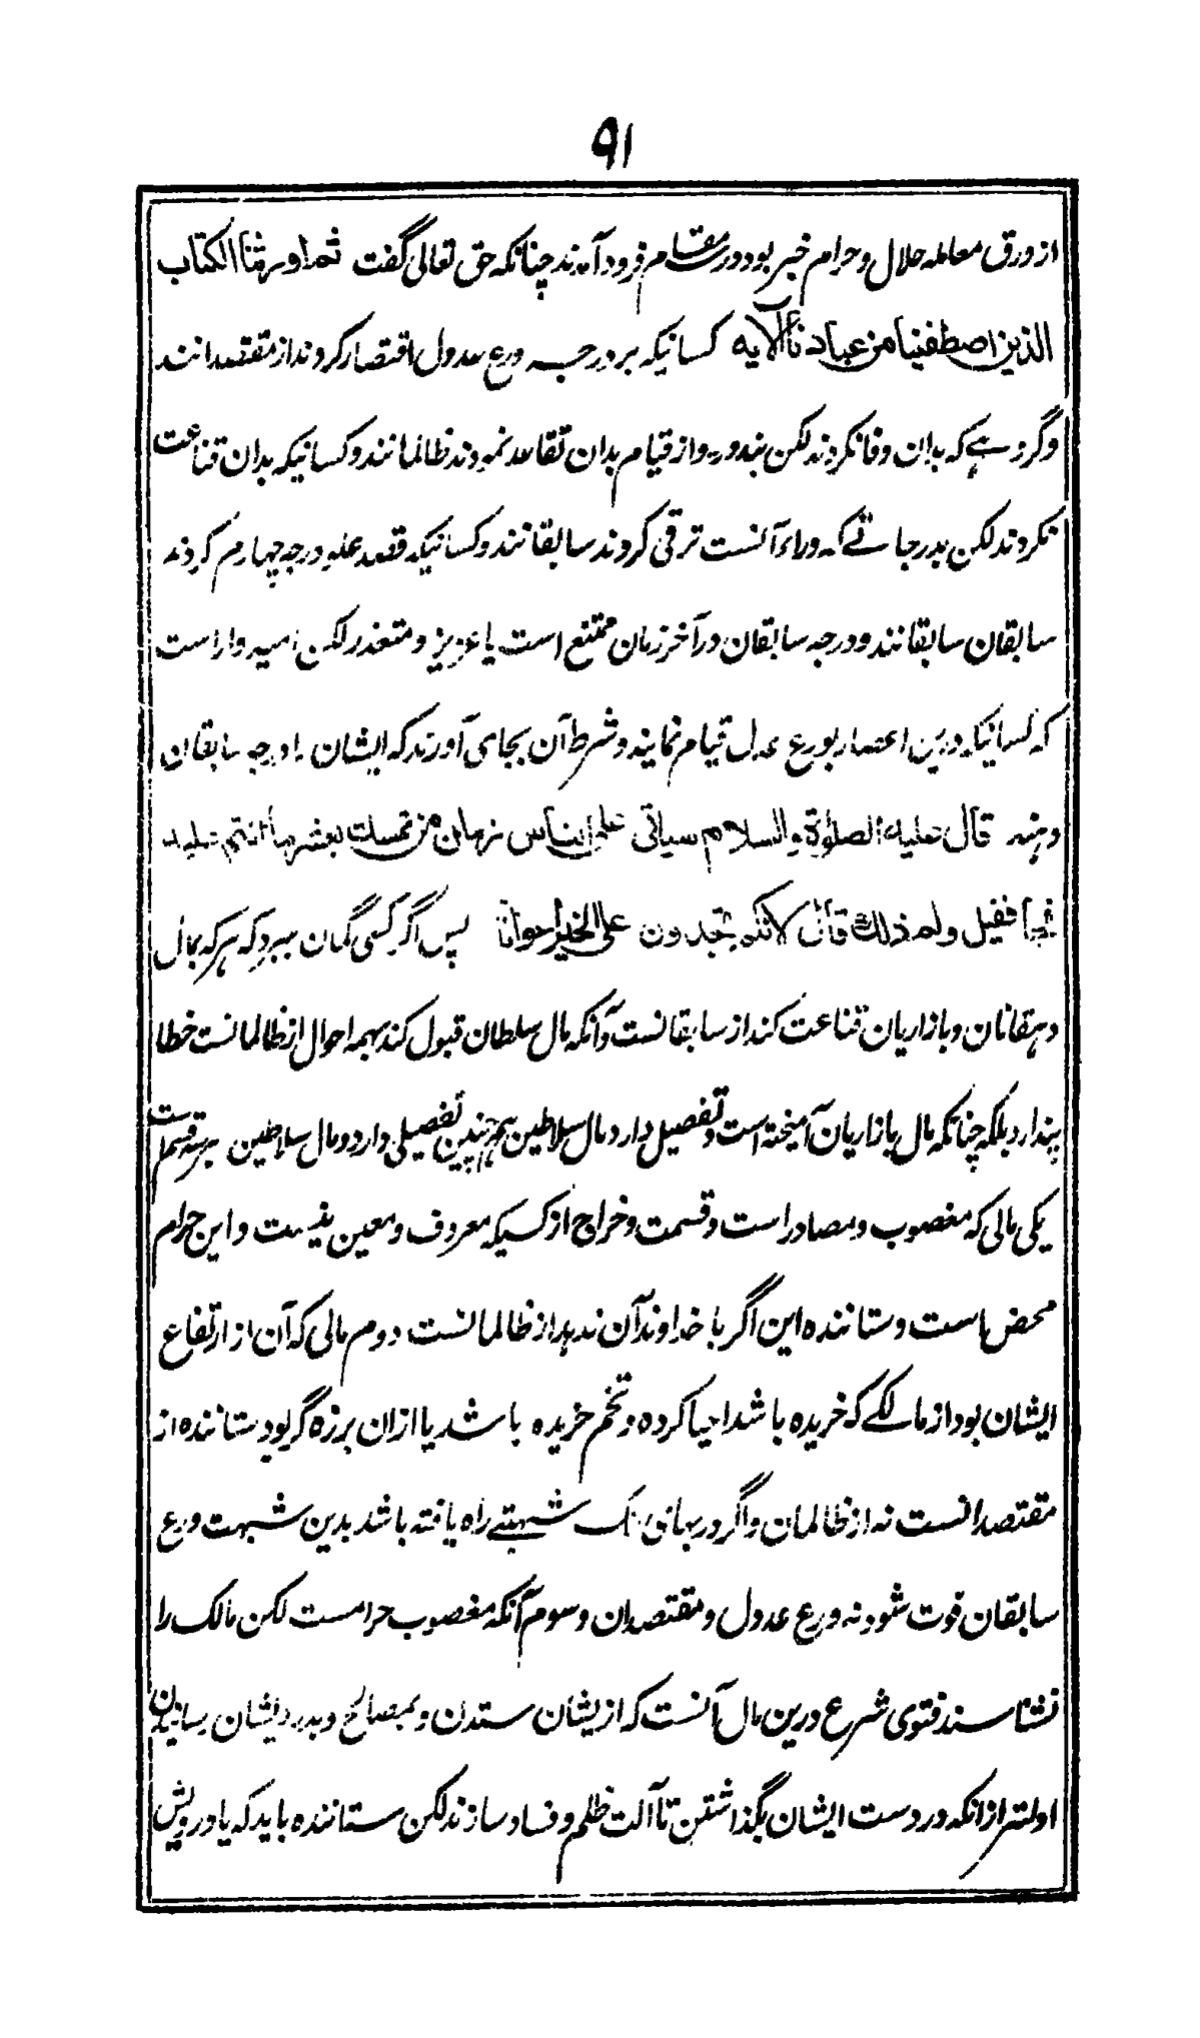 ۹۱
از ورق معامله حلال و حرام خبر بود در مقام فرود آمدند چنانکه حق تعالی گفت ثم اورثنا الکتاب
الذین اصطفینا من عبادنا الآیه کسانیکه بر درجه ورع عدول اقتصار کردند از مقتصدانند
و گروهے که بدان وفا نکردند لکن از قیام بدان تقاعد نمودند ظالمانند و کسانیکه بدان قناعت
نکردند لکن بدرجاتے که وراء آنست ترقی کردند سابقانند و کسانیکه قصد علو درجه چهارم کردند
سابقان سابقانند و درجه سابقان در آخر زمان ممتنع است یا عزیز و متعذر لکن امیدوار است
که کسانیکه درین اعصار بورع عدل قیام نمایند و شرط آن بجای آورند که ایشان را درجه سابقان
دهند قال علیه الصلوٰة و السلام سیاتی علی الناس زمان من تمسک بعشر ما انتم علیه
نجا فقیل و لم ذلک قال لانکم تجدون علی الخیر اعوانا پس اگر کسی گمان میبرد که هر که بمال
دهقانان و بازاریان قناعت کند از سابقانست و آنکه مال سلطان قبول کند بهمه احوال از ظالمانست خطا
پندارد بلکه چنانکه مال بازاریان آمیخته است و تفصیل دارد مال سلاطین همچنین تفصیلی دارد و مال سلاطین بر سه قسم است
یکی مالی که مغصوب و مصادر است و قسمت و خراج از کسیکه معروف و معین نیست و این حرام
محض است و ستاننده این اگر با خداوند آن ندهد از ظالمانست دوم مالی که آن از ارتفاع
ایشان بود از مالکے که خریده باشد احیا کرده و تخم خریده باشد یا از ان برزه گر بود ستاننده از
مقتصدانست نه از ظالمان و اگر در بهای شبهتے راه یافته باشد بدین شبهت ورع
سابقان فوت شود نه ورع عدول و مقتصدان و سوم آنکه مغصوب حرامست لکن مالک را
نشناسند فتوی شرع درین مال آنست که ازیشان ستدن و بمصالح و بدرویشان رسانیدن
اولیتر ازانکه در دست ایشان بگذاشتن تا آلت ظلم و فساد سازند لکن ستاننده باید که یا درویش